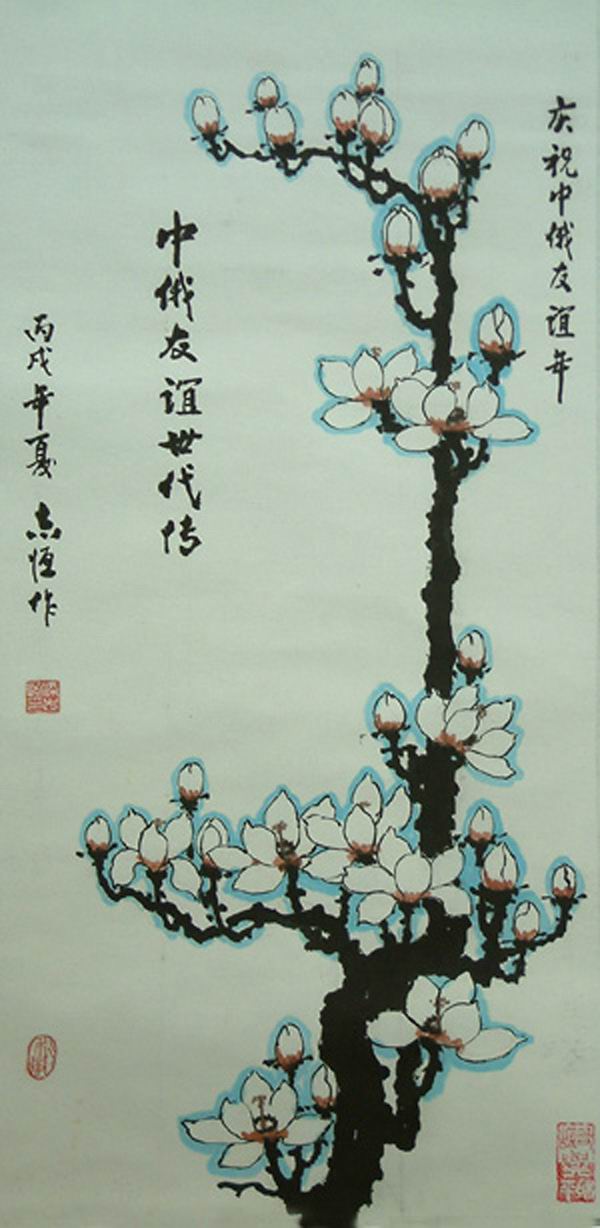 庆祝中俄友谊年
中俄友谊世代传
丙戌年夏 志恒作